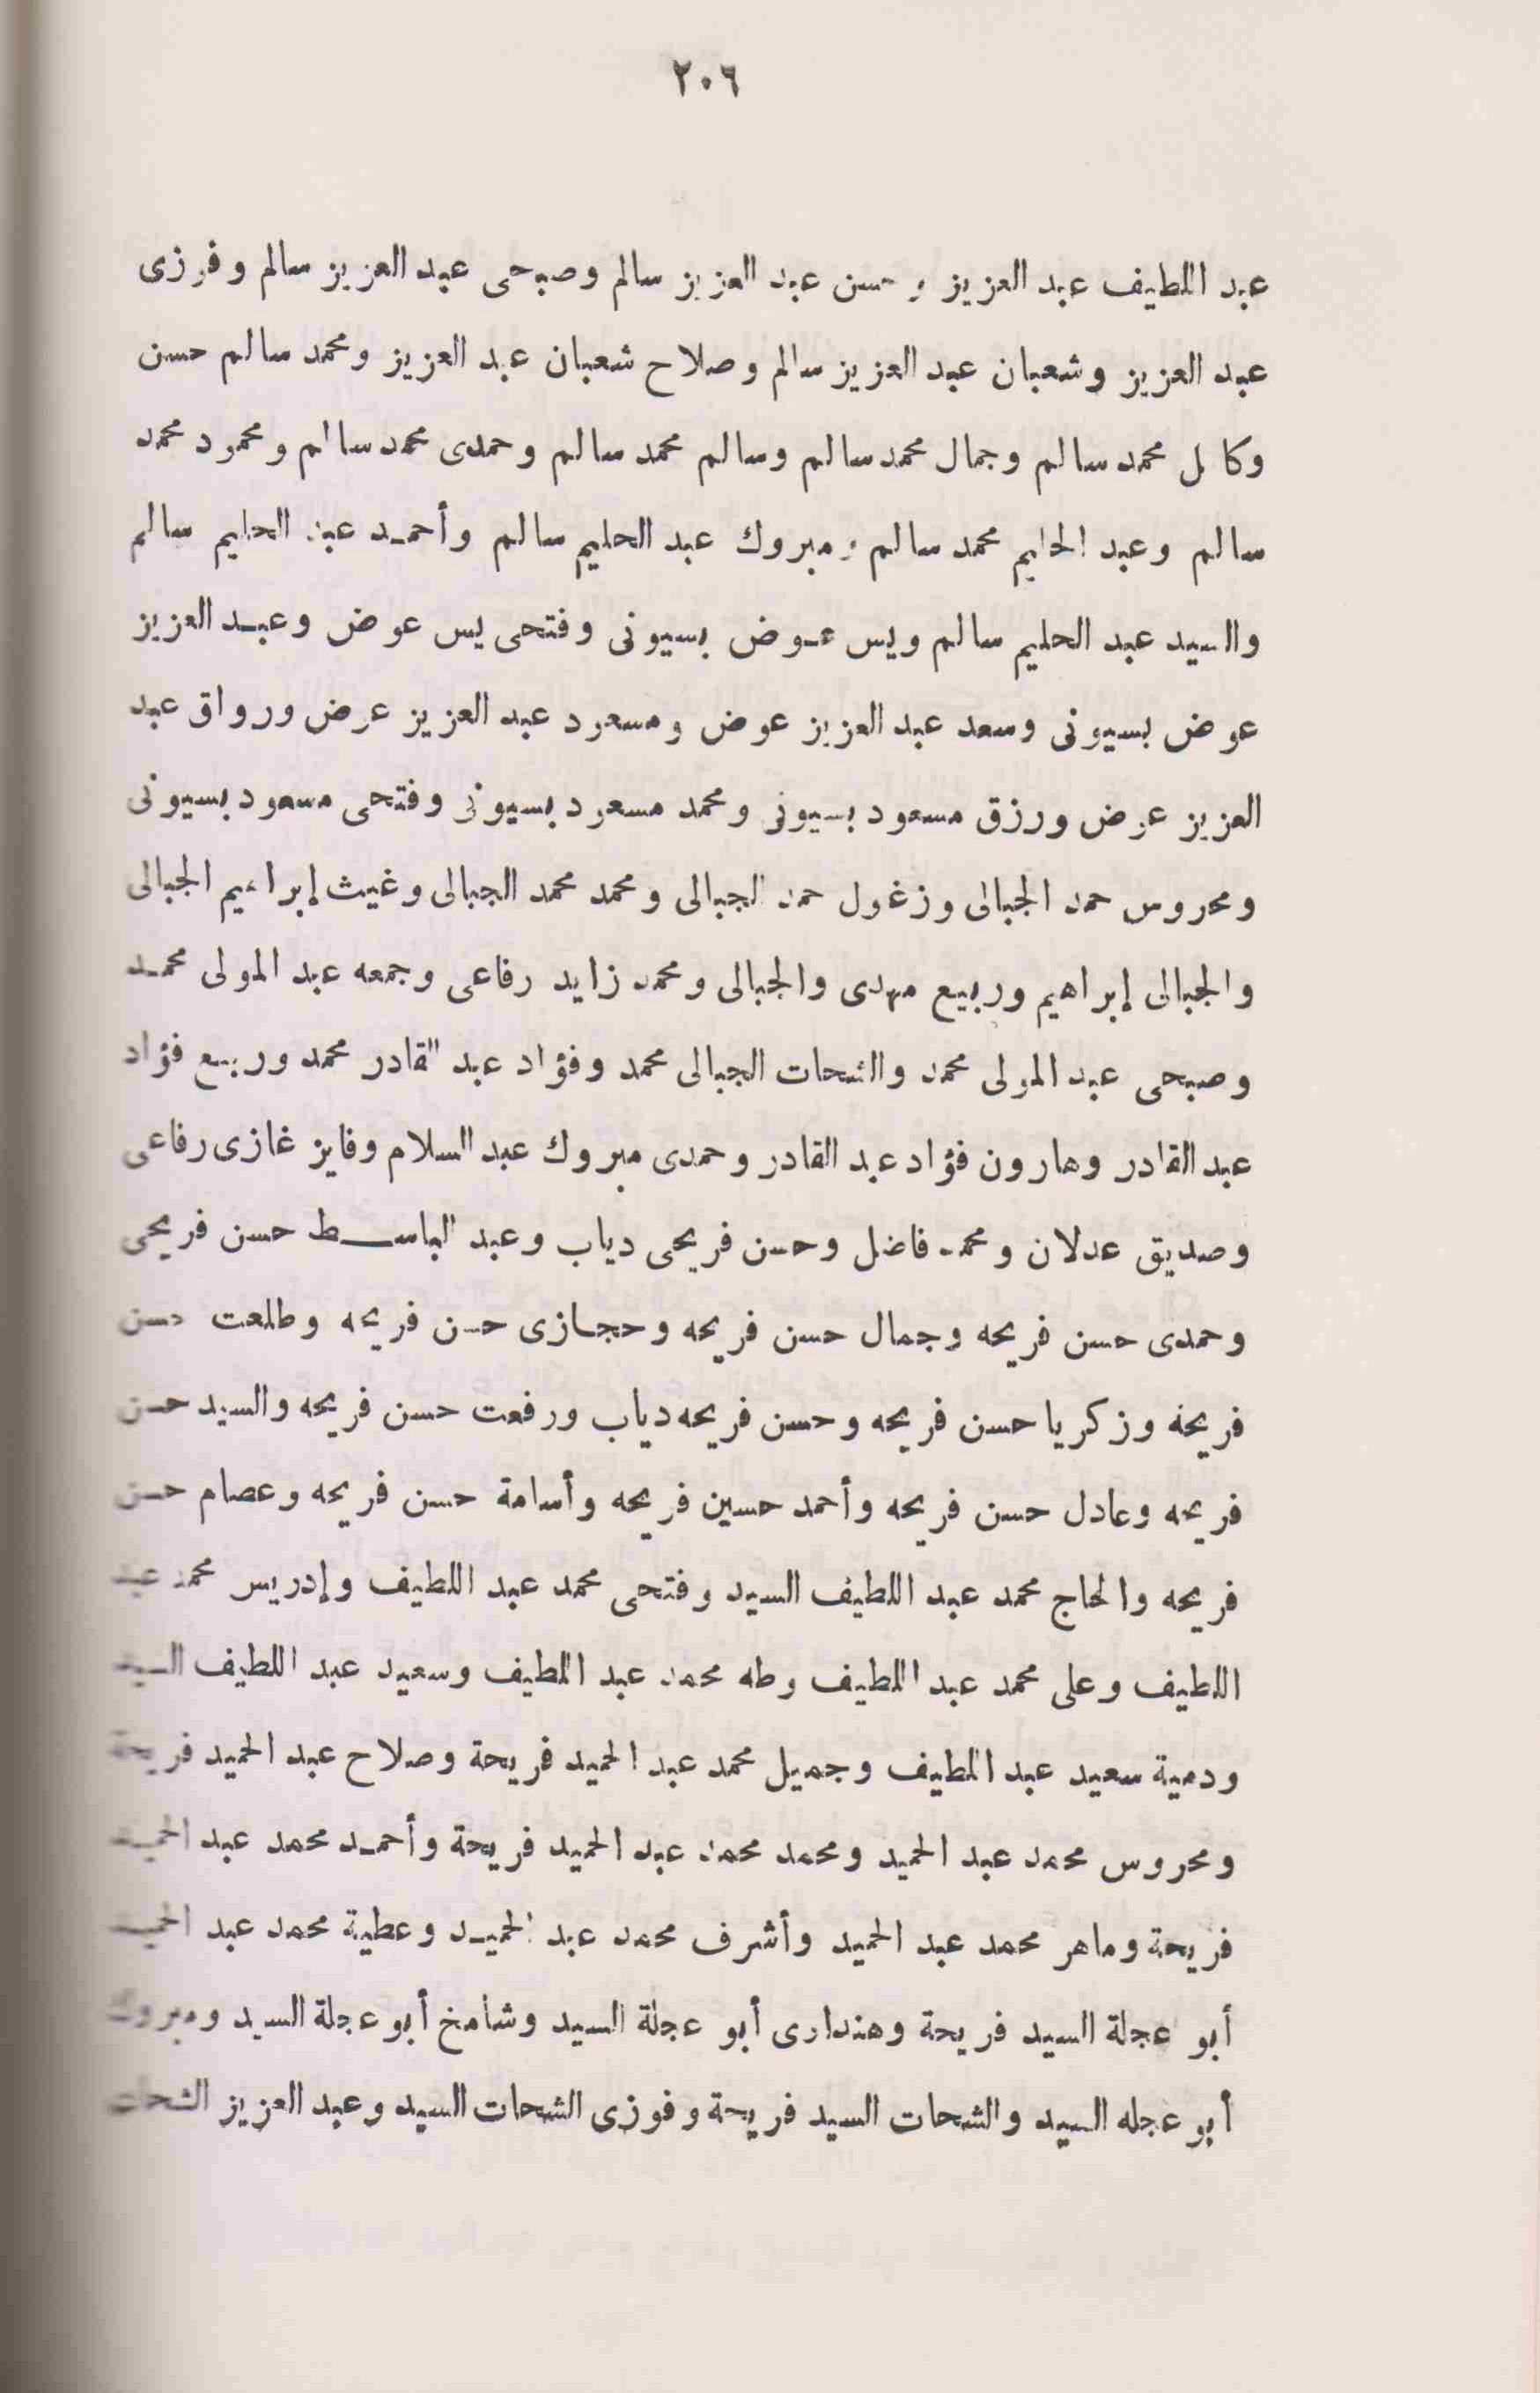 ٢٠٦
عبد اللطيف عبد العزيز وحسن عبد العزيز سالم وصبحى عبد العزيز سالم وفوزى
عبد العزيز وشعبان عبد العزيز سالم وصلاح شعبان عبد العزيز ومحمد سالم حسن
وكامل محمد سالم وجمال محمد سالم وسالم محمد سالم وحمدى محمد سالم ومحمود محمد
سالم وعبد الحليم محمد سالم ومبروك عبد الحليم سالم وأحمد عبد الحليم سالم
والسيد عبد الحليم سالم ويس عوض بسيونى وفتحى يس عوض وعبد العزيز
عوض بسيونى وسعد عبد العزيز عوض ومسعود عبد العزيز عوض ورواق عبد
العزيز عوض ورزق مسعود بسيونى ومحمد مسعود بسيونى وفتحى مسعود بسيونى
ومحروس حمد الجبالى وزغلول حمد الجبالى ومحمد محمد الجبالى وغيث إبراهيم الجبالى
والجبالى إبراهيم وربيع مهدى والجبالى ومحمد زايد رفاعى وجمعه عبد المولى محمد
وصبحى عبد المولى محمد والشحات الجبالى محمد وفؤاد عبد القادر محمد وربيع فؤاد
عبد القادر وهارون فؤاد عبد القادر وحمدى مبروك عبد السلام وفايز غازى رفاعى
وصديق عدلان ومحمد فاضل وحسن فريحى دياب وعبد الباسط حسن فريحى
وحمدى حسن فريحه وجمال حسن فريحه وحجازى حسن فريحه وطلعت حسن
فريحة وزكريا حسن فريحه وحسن فريحه دياب ورفعت حسن فريحه والسيد حسن
فريحه وعادل حسن فريحه وأحمد حسين فريحه وأسامة حسن فريحه وعصام حسن
فريحه والحاج محمد عبد اللطيف السيد وفتحى محمد عبد اللطيف وإدريس محمد عبد
اللطيف وعلى محمد عبد اللطيف وطه محمد عبد اللطيف وسعيد عبد اللطيف السيد
ودمية سعيد عبد اللطيف وجميل محمد عبد الحميد فريحة وصلاح عبد الحميد فريحة
ومحروس محمد عبد الحميد ومحمد محمد عبد الحميد فريحة وأحمد محمد عبد الحميد
فريحة وماهر محمد عبد الحميد وأشرف محمد عبد الحميد وعطية محمد عبد الحميد
أبو عجلة السيد فريحة وهندارى أبو عجلة السيد وشامخ أبو عجلة السيد ومبروك
أبو عجله السيد والشحات السيد فريحة وفوزى الشحات السيد وعبد العزيز الشحات